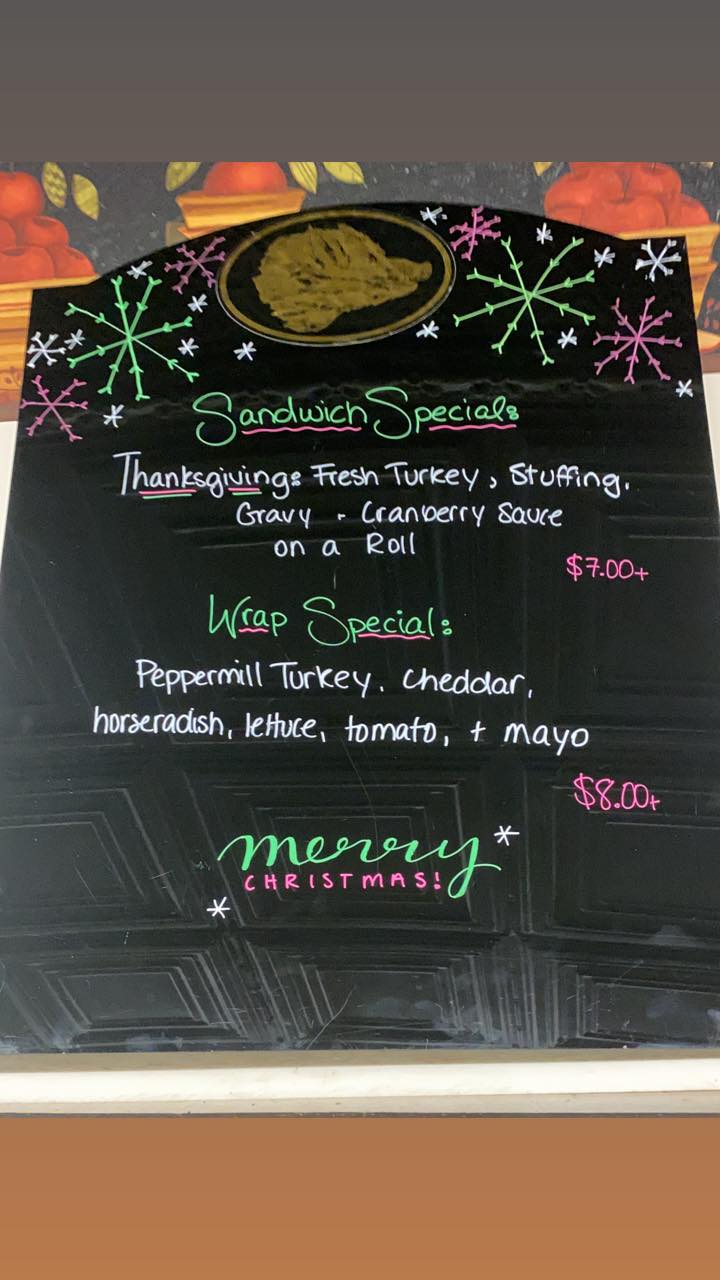 Sandwich Specials
Thanksgiving: Fresh Turkey, Stuffing,
Gravy + Cranberry Sauce
on a Roll
$7.00+
Wrap Special:
Peppermill Turkey, Cheddar,
horseradish, lettuce, tomato, + mayo
$8.00+
merry
CHRISTMAS!